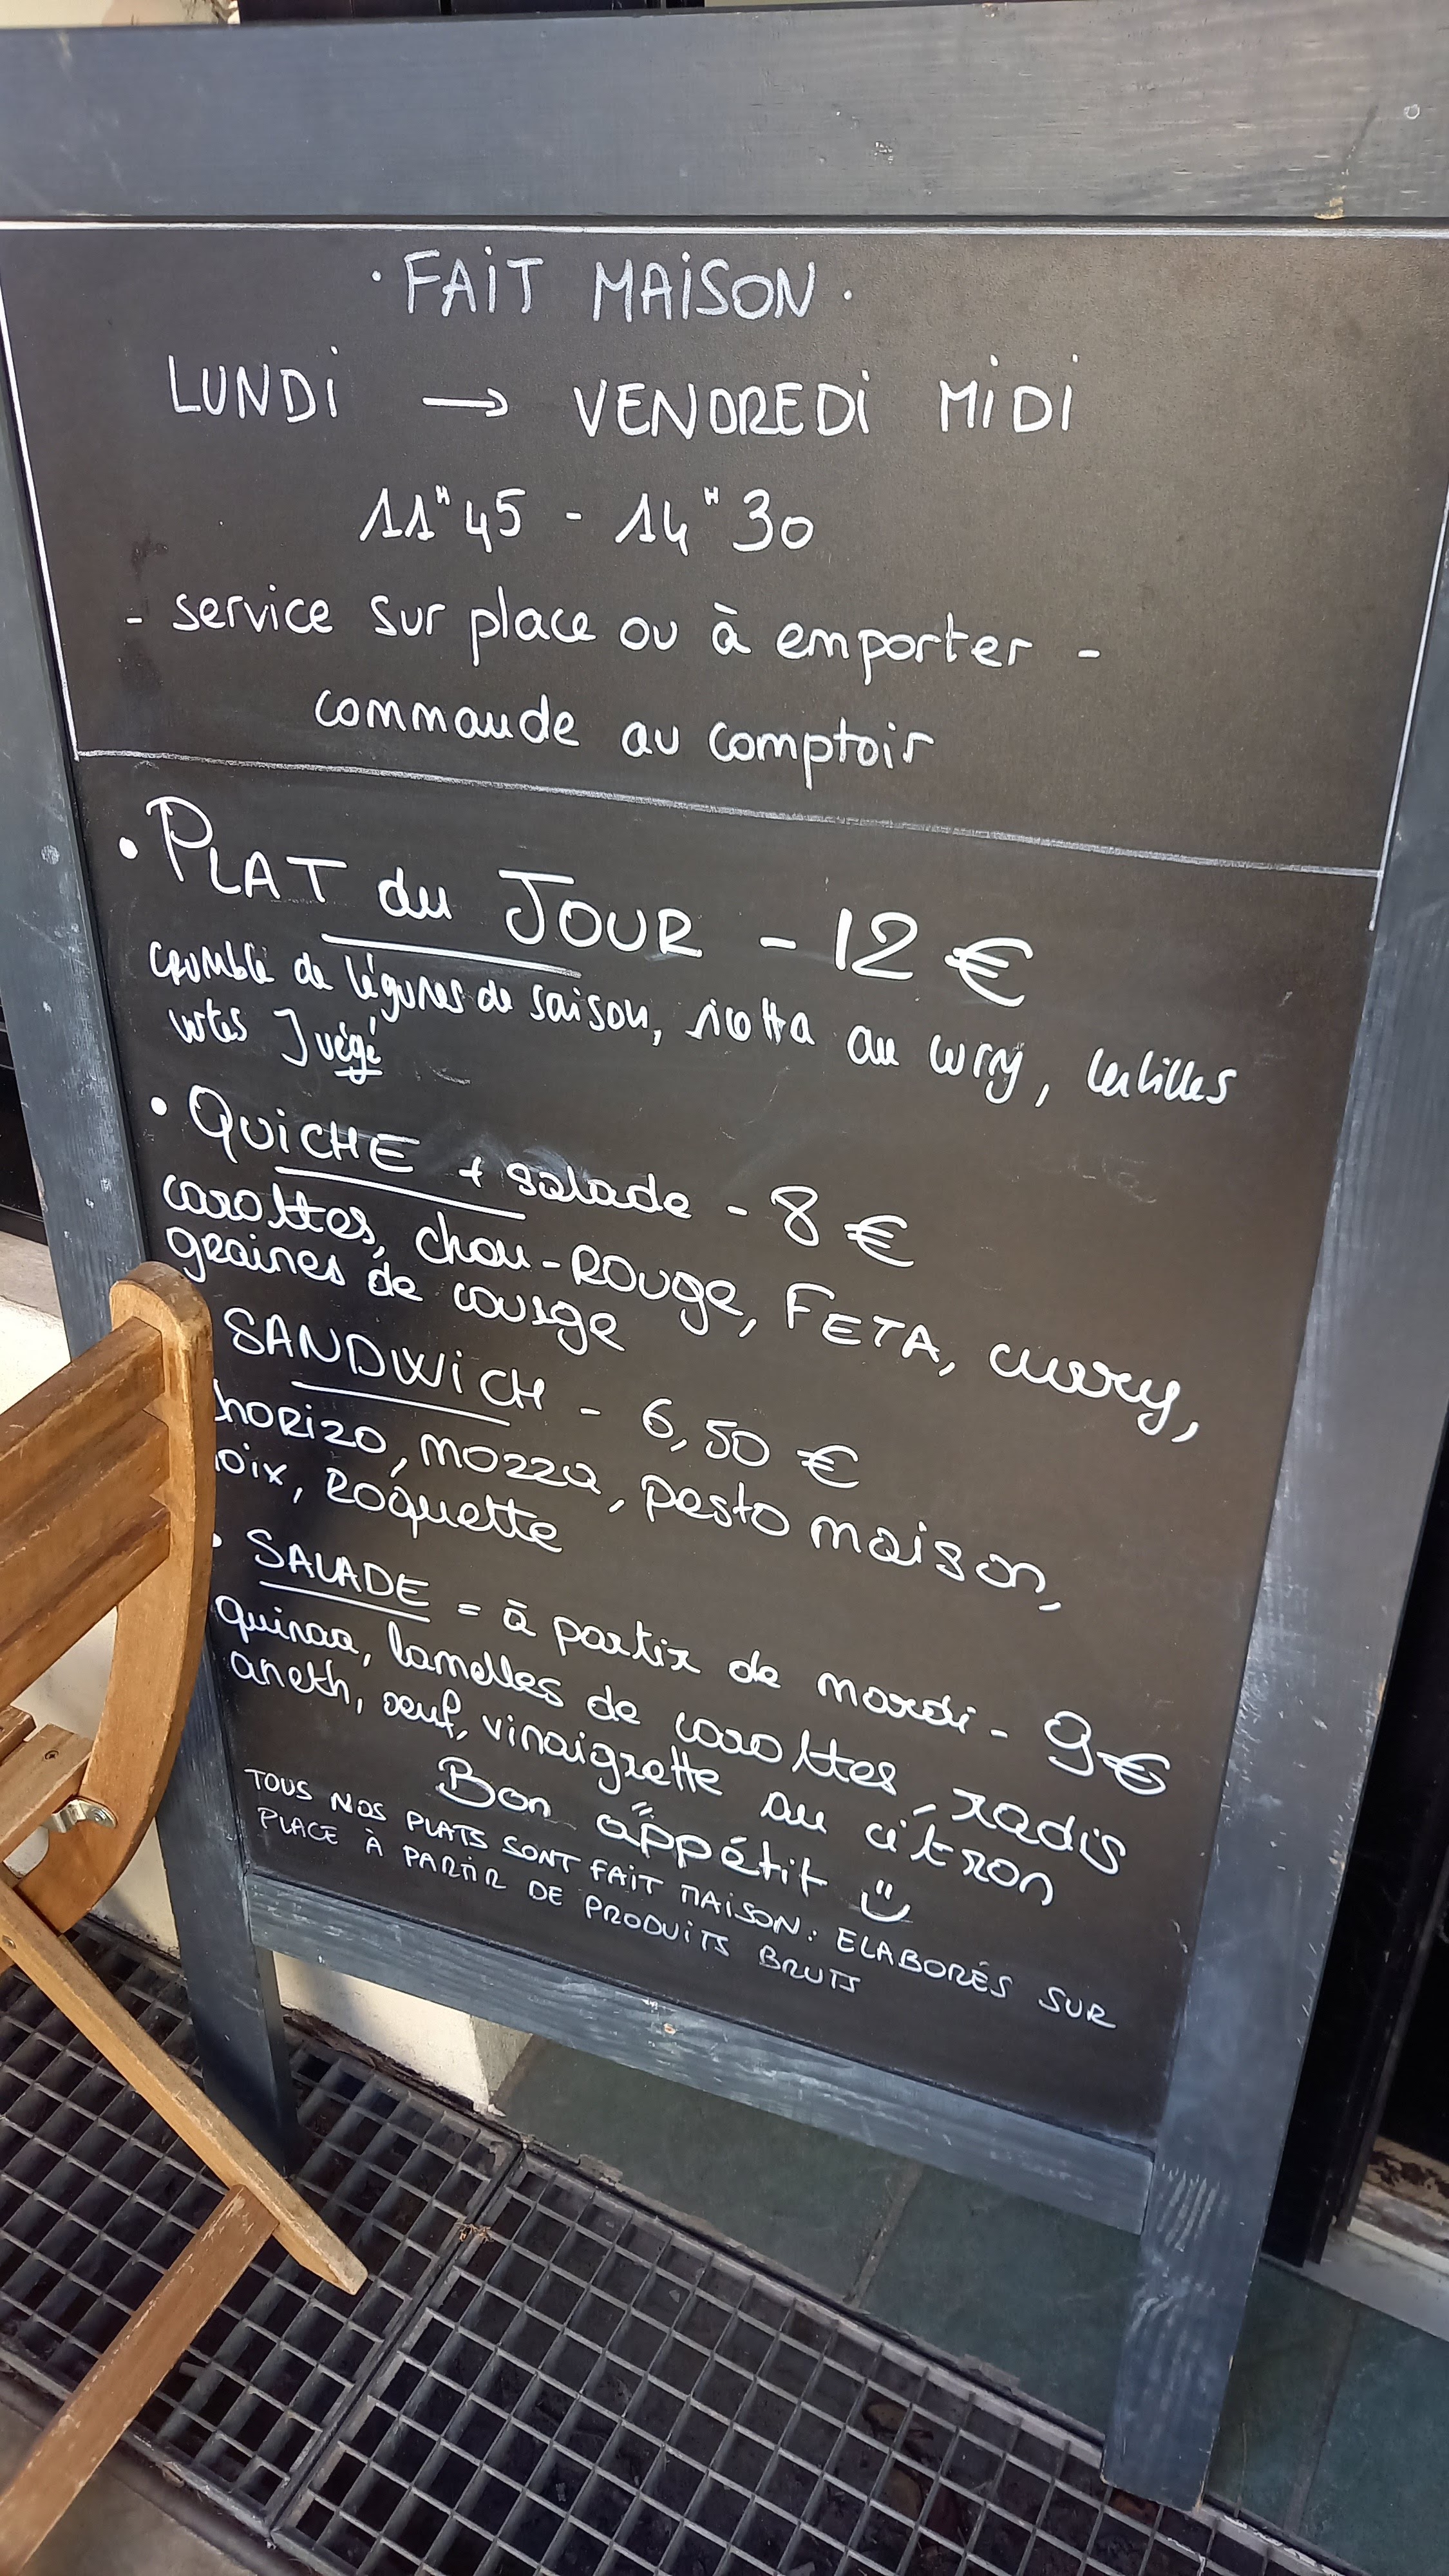 · FAIT MAISON ·
LUNDI → VENDREDI MIDI
11H45 - 14H30
- service sur place ou à emporter -
commande au comptoir
• PLAT du JOUR - 12 €
crumble de légumes de saison, ricotta au curry, lentilles
vertes } végé
• QUICHE + salade - 8 €
carottes, chou-ROUGE, FETA, curry,
graines de courge
SANDWICH - 6,50 €
horizo, mozza, pesto maison,
oix, Roquette
• SALADE = à partir de mardi - 9€
quinoa, lamelles de carottes, radis
aneth, oeuf, vinaigrette au citron
Bon appétit
TOUS NOS PLATS SONT FAIT MAISON: ELABORÉS SUR
PLACE À PARTIR DE PRODUITS BRUTS